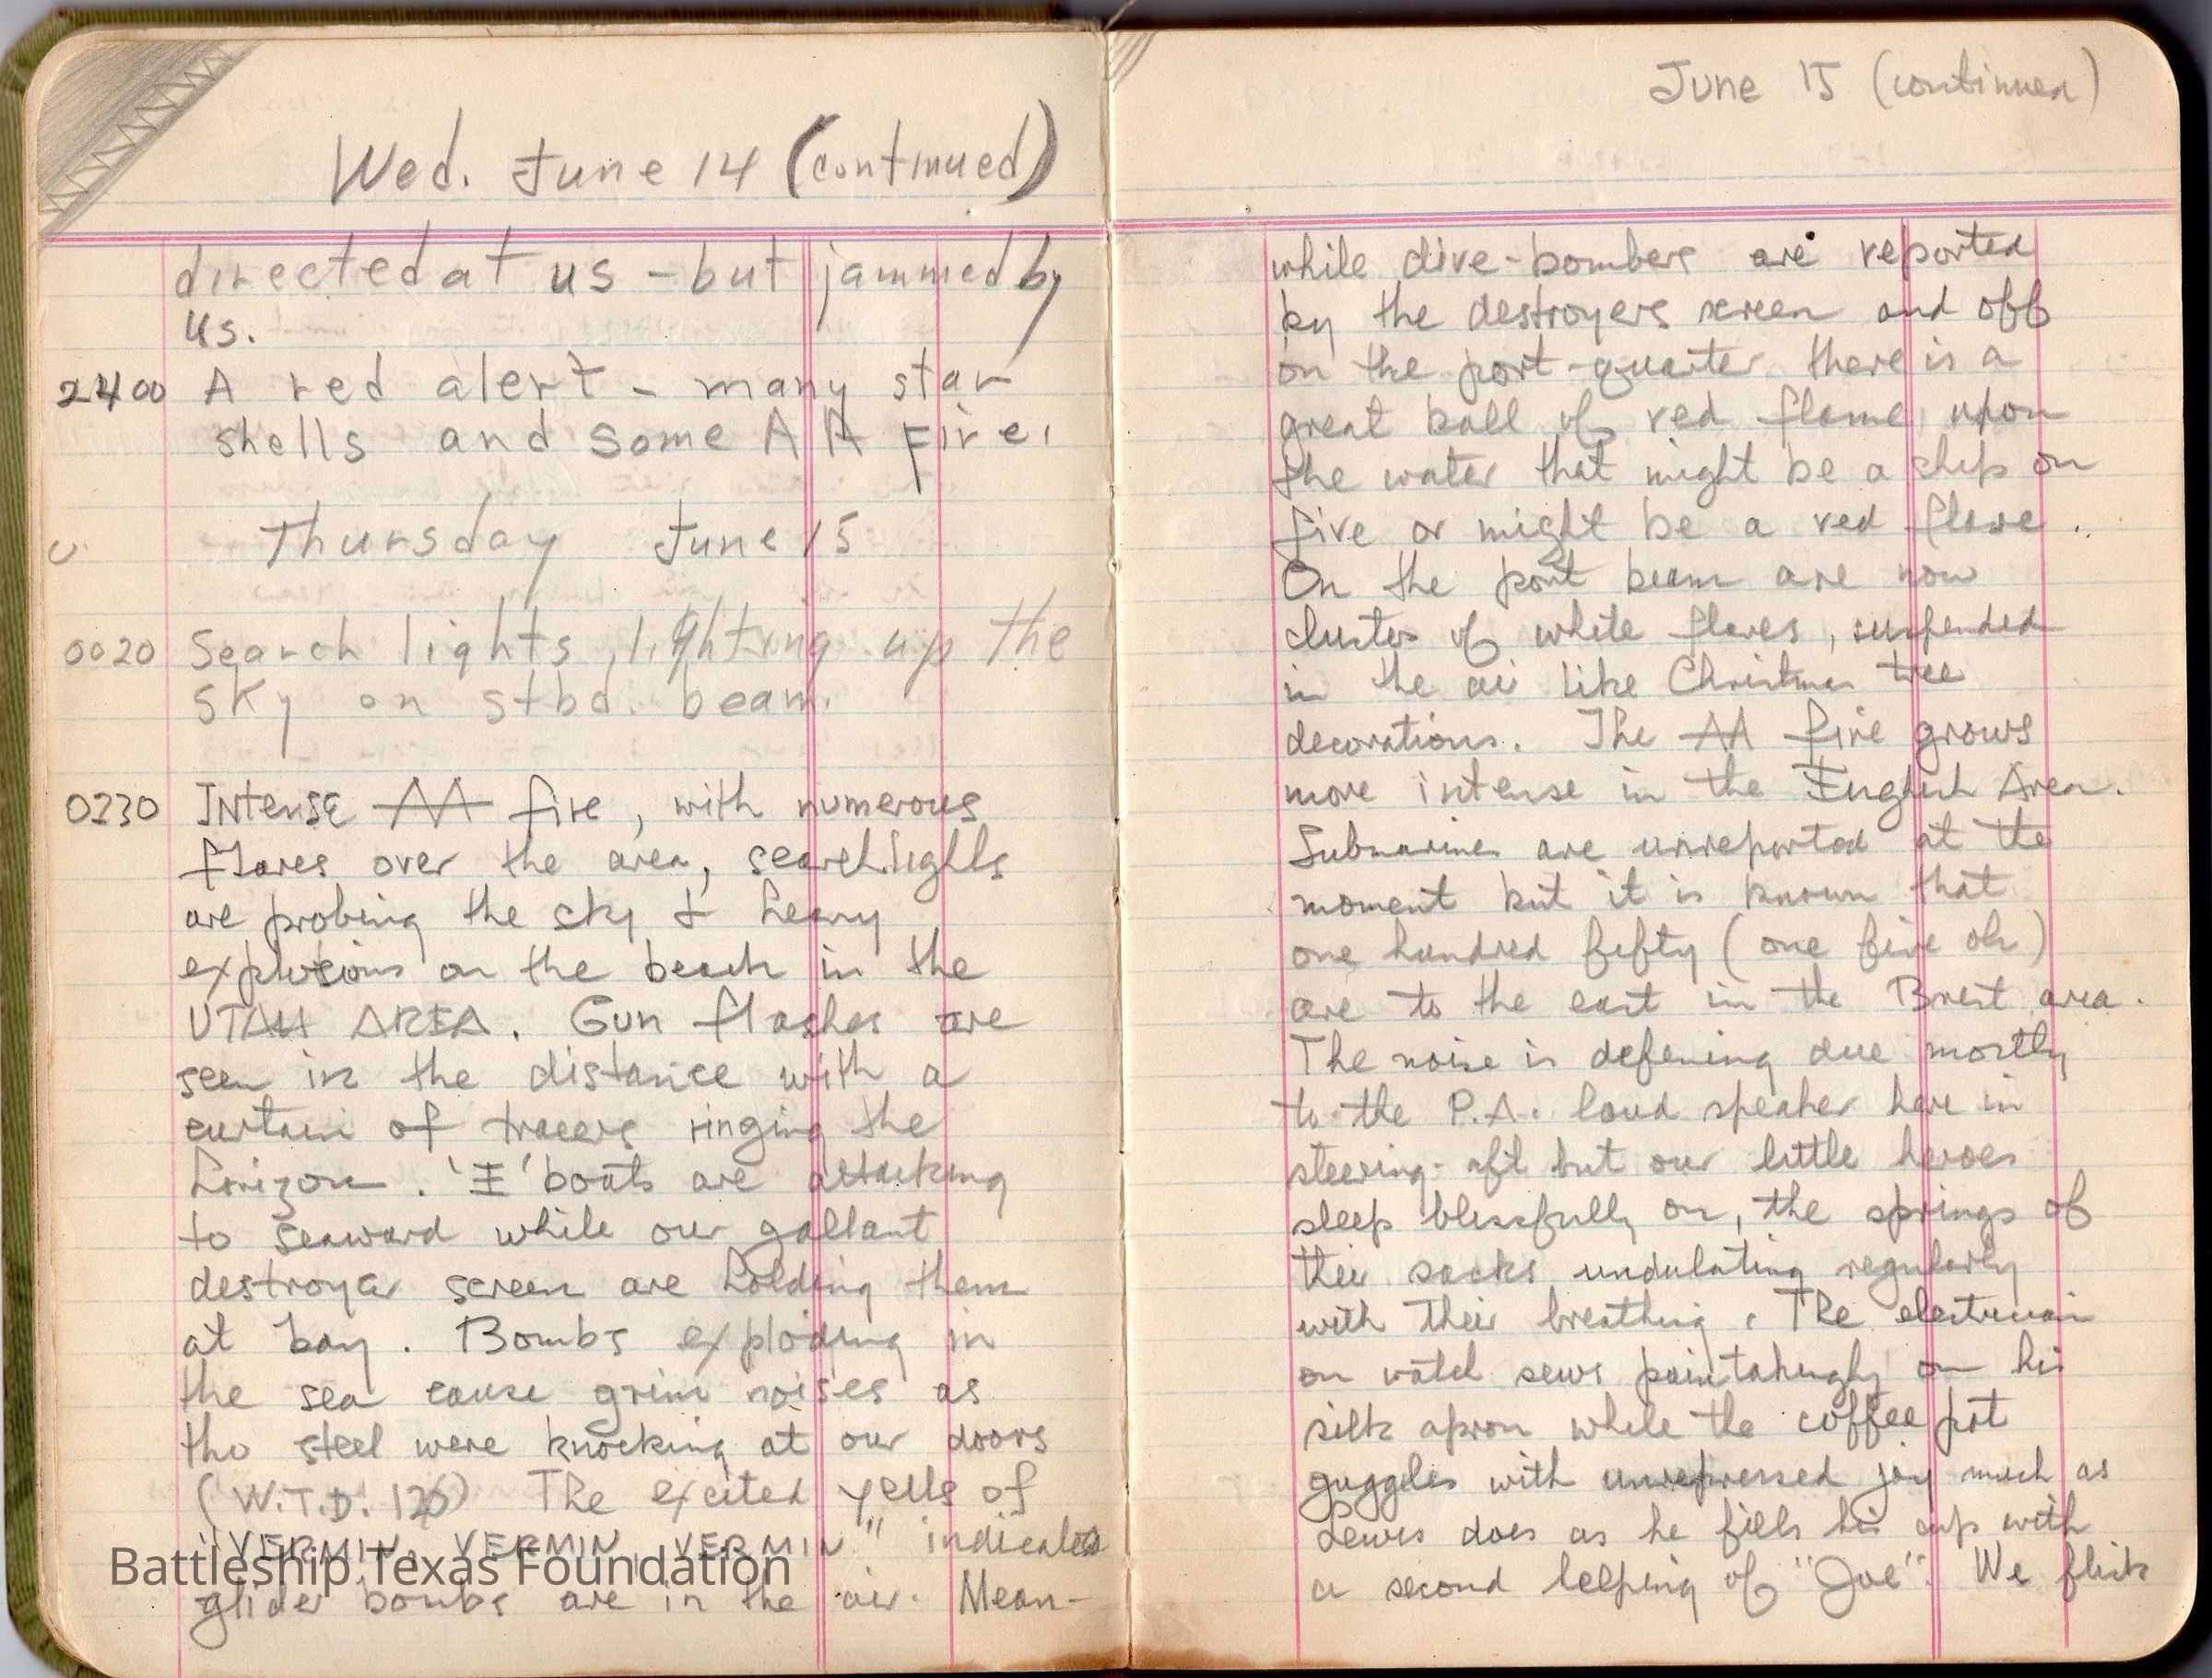 Wed. June 14 (continued)
directed at us - but jammed by
us.
2400 A red alert - many star
shells and some AA fire.
Thursday June 15
0020 Search lights, lighting up the
sky on stbd. beam.
0230 Intense AA fire, with numerous
flares over the area, searchlights
are probing the sky & heavy
explosions on the beach in the
UTAH AREA. Gun flashes are
seen in the distance with a
curtain of tracers ringing the
horizon. 'E' boats are attacking
to seaward while our gallant
destroyer screen are holding them
at bay. Bombs exploding in
the sea cause grim noises as
tho steel were knocking at our doors
(W.T.D. 126) The excited yells of
"VERMIN, VERMIN, VERMIN" indicates
glider bombs are in the air. Mean-
Battleship Texas Foundation
June 15 (continued)
while dive-bombers are reported
by the destroyers screen and off
on the port-quarter there is a
great ball of red flame upon
the water that might be a ship on
fire or might be a red flare.
On the port beam are now
cluster of white flares, suspended
in the air like Christmas tree
decorations. The AA fire grows
more intense in the English Area.
Submarines are unreported at the
moment but it is known that
one hundred fifty (one five oh)
are to the east in the Brest area.
The noise is defening due mostly
to the P.A. loud speaker here in
steering-aft but our little heroes
sleep blissfully on, the springs of
their sacks undulating regularly
with their breathing. The electrician
on watch sews paintakingly on his
silk apron while the coffee pot
guggles with unrepressed joy much as
Lewis does as he fills his cup with
a second helping of "Joe". We flick